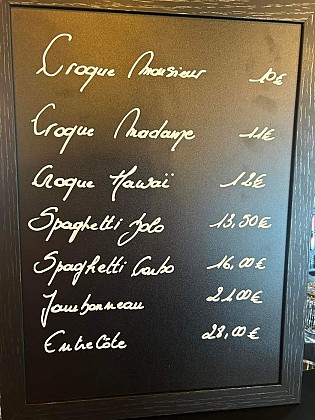 Croque Monsieur 10€
Croque Madame 11€
Croque Hawaï 12€
Spaghetti Bolo 13,50€
Spaghetti Carbo 16,00€
Jambonneau 21,00€
EntreCôte 28,00€